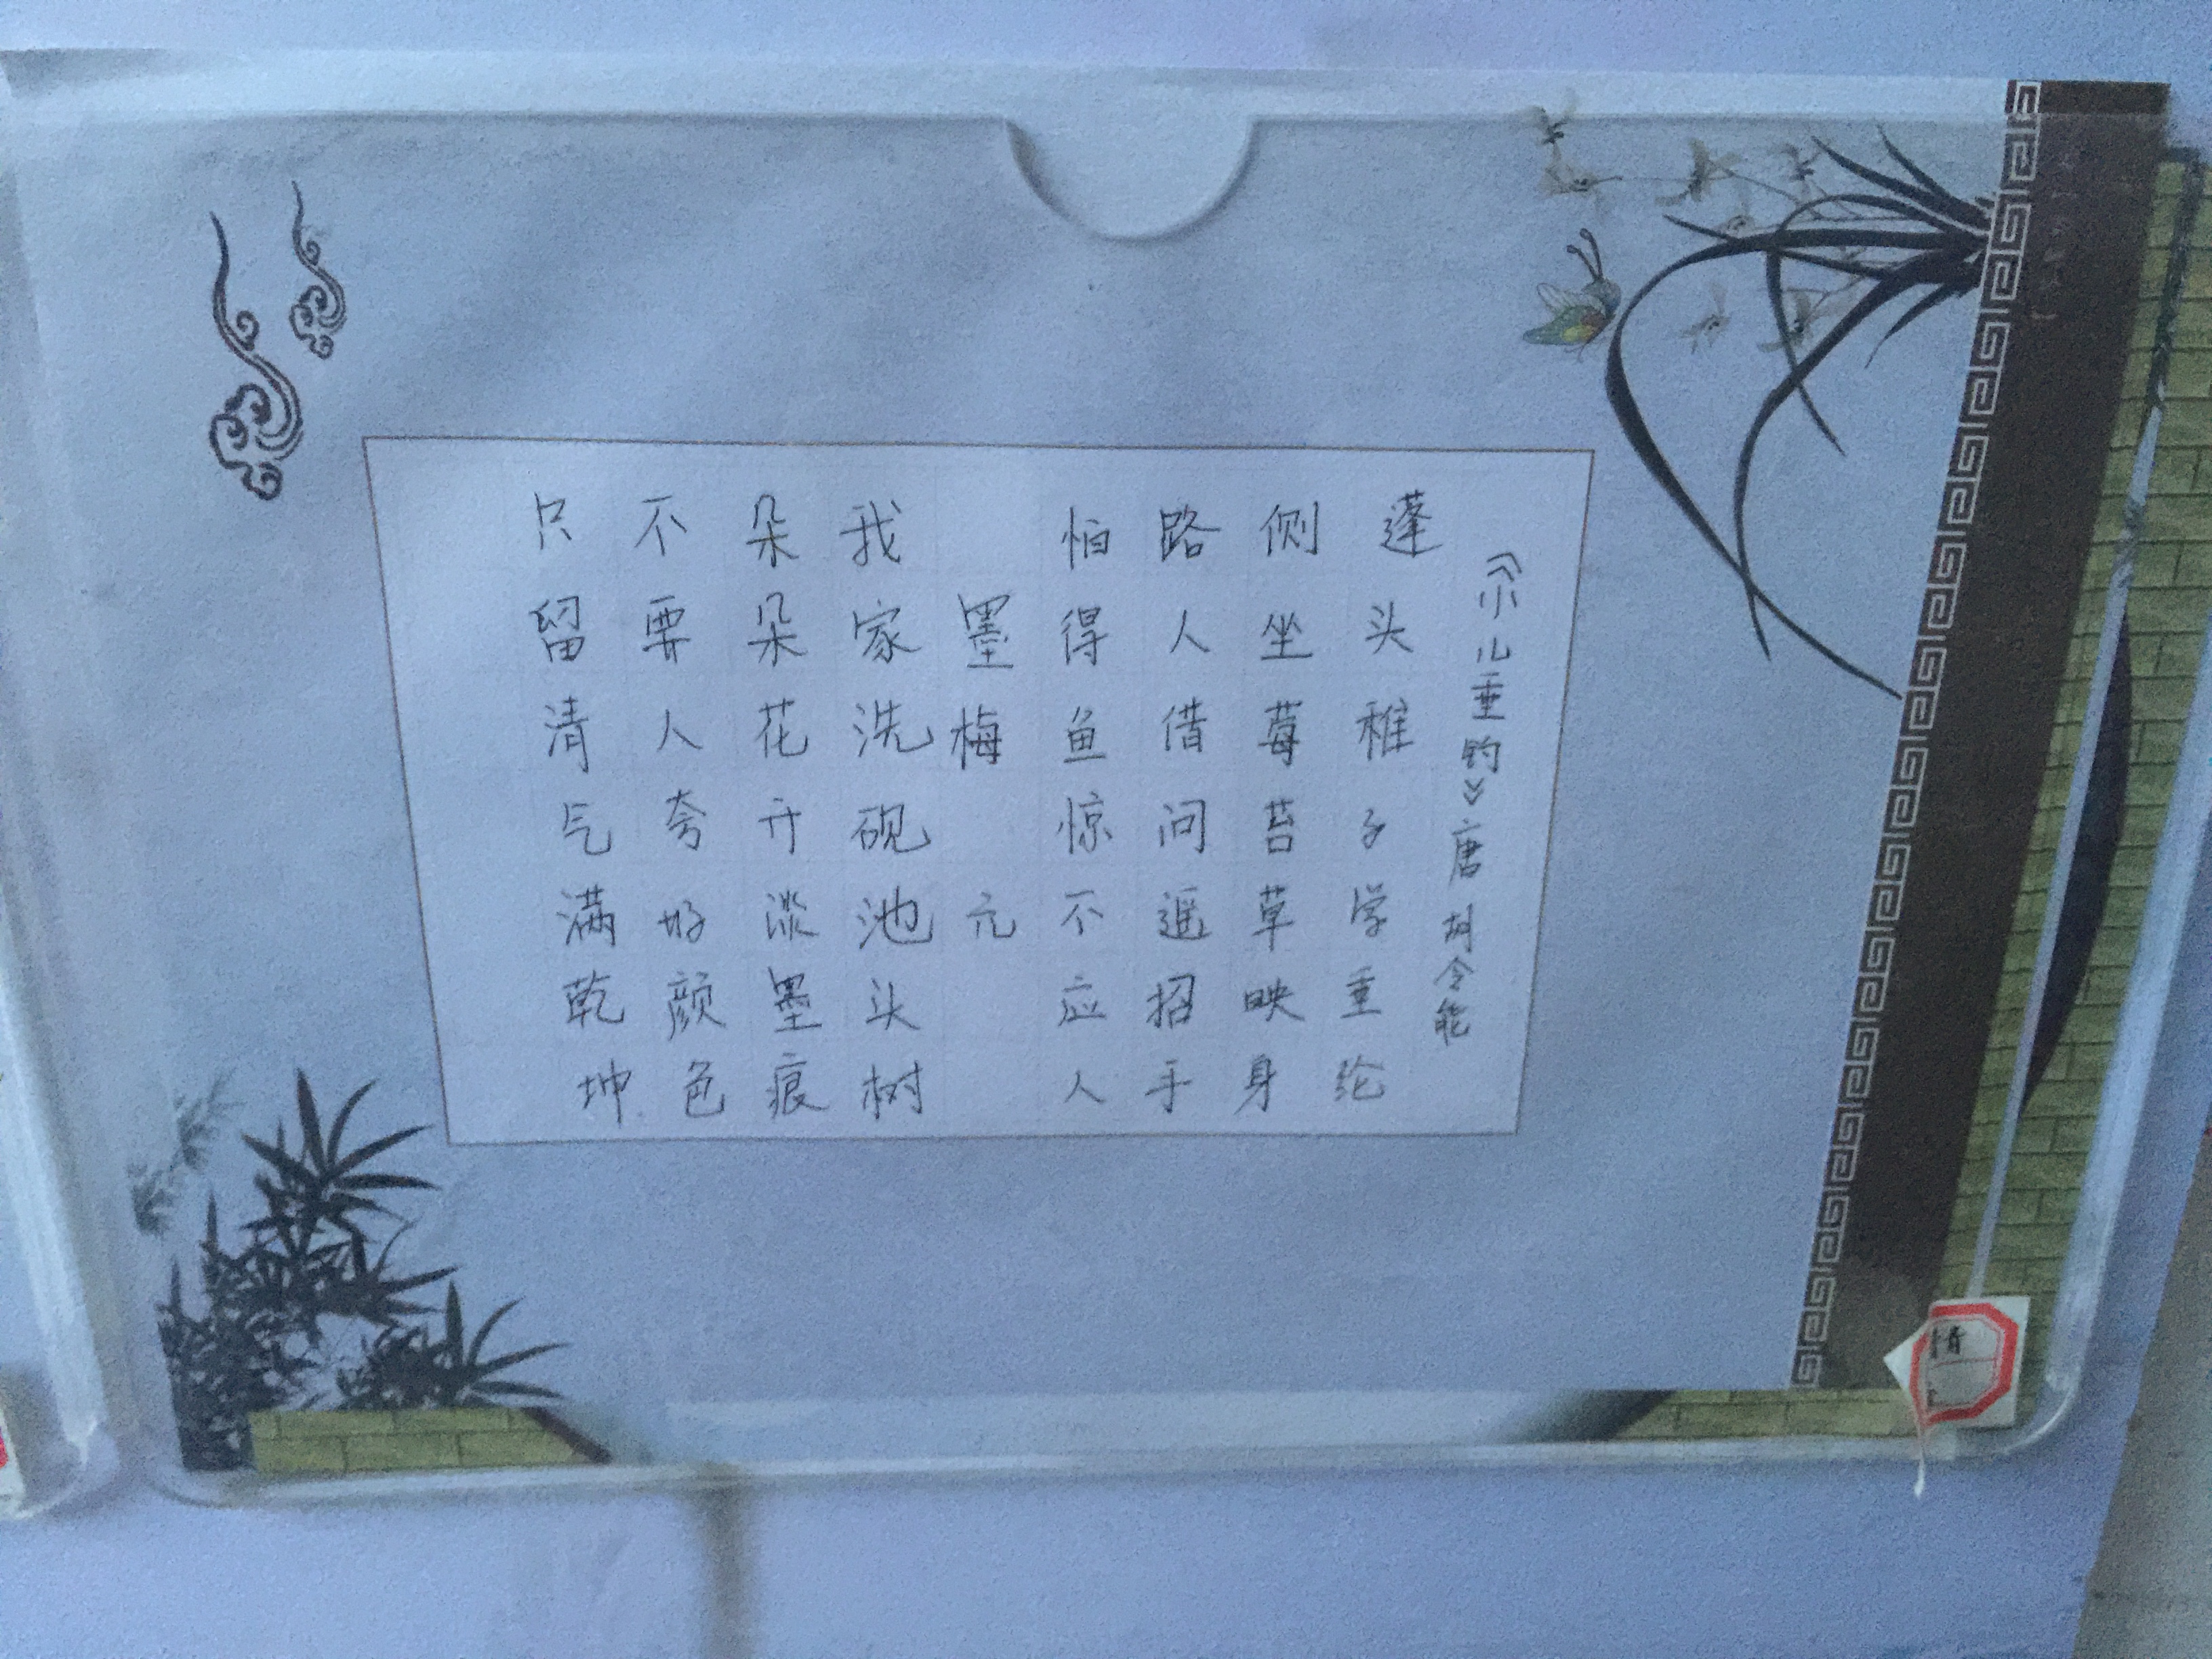 《小儿垂钓》唐 胡令能
蓬头稚子学垂纶
侧坐莓苔草映身
路人借问遥招手
怕得鱼惊不应人
墨梅 元
我家洗砚池头树
朵朵花开淡墨痕
不要人夸好颜色
只留清气满乾坤